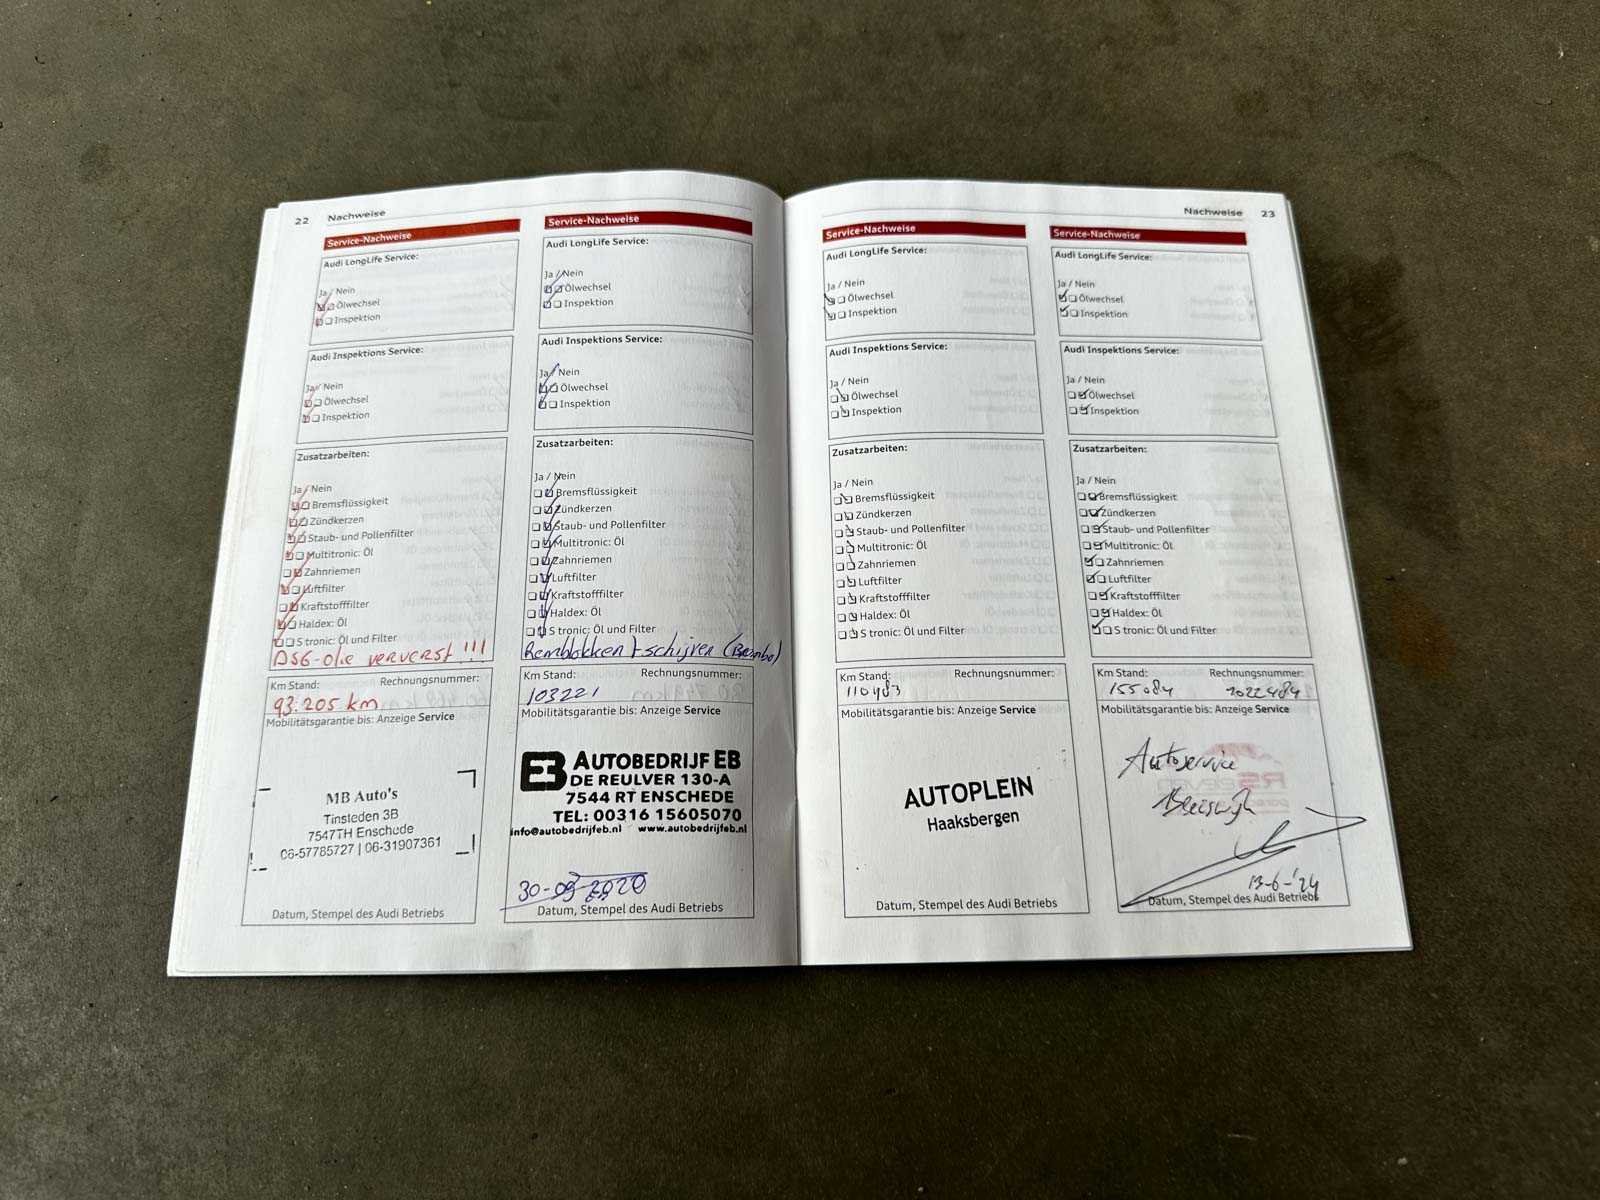 22 Nachweise
Service-Nachweise
Audi LongLife Service:
Ja / Nein
Ölwechsel
Inspektion
Audi Inspektions Service:
Ja / Nein
Ölwechsel
Inspektion
Zusatzarbeiten:
Ja / Nein
Bremsflüssigkeit
Zündkerzen
Staub- und Pollenfilter
Multitronic: Öl
Zahnriemen
Luftfilter
Kraftstofffilter
Haldex: Öl
S tronic: Öl und Filter
DSG-olie ververst !!!
Km Stand: Rechnungsnummer:
93.205 km
Mobilitätsgarantie bis: Anzeige Service
MB Auto's
Tinsteden 3B
7547TH Enschede
06-57785727 | 06-31907361
Datum, Stempel des Audi Betriebs
Service-Nachweise
Audi LongLife Service:
Ja / Nein
Ölwechsel
Inspektion
Audi Inspektions Service:
Ja / Nein
Ölwechsel
Inspektion
Zusatzarbeiten:
Ja / Nein
Bremsflüssigkeit
Zündkerzen
Staub- und Pollenfilter
Multitronic: Öl
Zahnriemen
Luftfilter
Kraftstofffilter
Haldex: Öl
S tronic: Öl und Filter
Remblokken + schijven (Brembo)
Km Stand: Rechnungsnummer:
103221
Mobilitätsgarantie bis: Anzeige Service
EB AUTOBEDRIJF EB
DE REULVER 130-A
7544 RT ENSCHEDE
TEL: 00316 15605070
info@autobedrijfeb.nl www.autobedrijfeb.nl
30-09-2020
Datum, Stempel des Audi Betriebs
Nachweise 23
Service-Nachweise
Audi LongLife Service:
Ja / Nein
Ölwechsel
Inspektion
Audi Inspektions Service:
Ja / Nein
Ölwechsel
Inspektion
Zusatzarbeiten:
Ja / Nein
Bremsflüssigkeit
Zündkerzen
Staub- und Pollenfilter
Multitronic: Öl
Zahnriemen
Luftfilter
Kraftstofffilter
Haldex: Öl
S tronic: Öl und Filter
Km Stand: Rechnungsnummer:
110483
Mobilitätsgarantie bis: Anzeige Service
AUTOPLEIN
Haaksbergen
Datum, Stempel des Audi Betriebs
Service-Nachweise
Audi LongLife Service:
Ja / Nein
Ölwechsel
Inspektion
Audi Inspektions Service:
Ja / Nein
Ölwechsel
Inspektion
Zusatzarbeiten:
Ja / Nein
Bremsflüssigkeit
Zündkerzen
Staub- und Pollenfilter
Multitronic: Öl
Zahnriemen
Luftfilter
Kraftstofffilter
Haldex: Öl
S tronic: Öl und Filter
Km Stand: Rechnungsnummer:
155084 2022484
Mobilitätsgarantie bis: Anzeige Service
Autoservice
13-6-'24
Datum, Stempel des Audi Betriebs